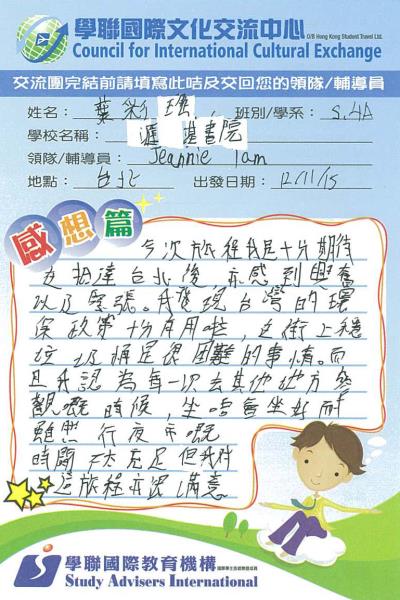 學聯國際文化交流中心
O/B Hong Kong Student Travel Ltd.
Council for International Cultural Exchange
交流團完結前請填寫此咭及交回您的領隊/輔導員
姓名： 葉彩 班別/學系： S.4A
學校名稱： 書院
領隊/輔導員： Jeannie Tam
地點： 台北 出發日期： 12/11/15
感想篇
今次旅程我是十分期待
抵達台北後，亦感到興奮
以及緊張。我發現台灣的環
保政策十分有用啦，在街上
垃圾桶是很困難的事情。而
且我認為每一次去其他地方參
觀嘅時候，坐
雖然 行夜市嘅
時間 不太充足 但我對
這旅程亦很滿意。
學聯國際教育機構
Study Advisers International